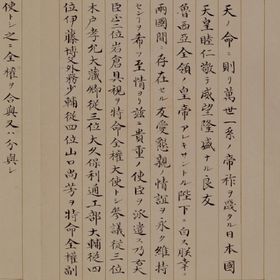 天ノ命ニ則リ萬世一系ノ帝祚ヲ踐タル日本國
天皇睦仁敬テ威望隆盛ナル良友
魯西亞全領ノ皇帝アレキサントル陛下ニ白ス朕幸ニ
兩國間ニ存在セル友愛懇親ノ情誼ヲ永ク維持
センヿヲ希フ至情ヨリ茲ニ貴重ノ使臣ヲ派遣シ乃亥
臣正二位岩倉具視ヲ特命全權大使トシ參議從三位
木戸孝允大藏卿從三位大久保利通工部大輔從四
位伊藤博文外務少輔從四位山口尚芳ヲ特命全權副
使トシ之ニ全權ヲ合與又ハ分與シ